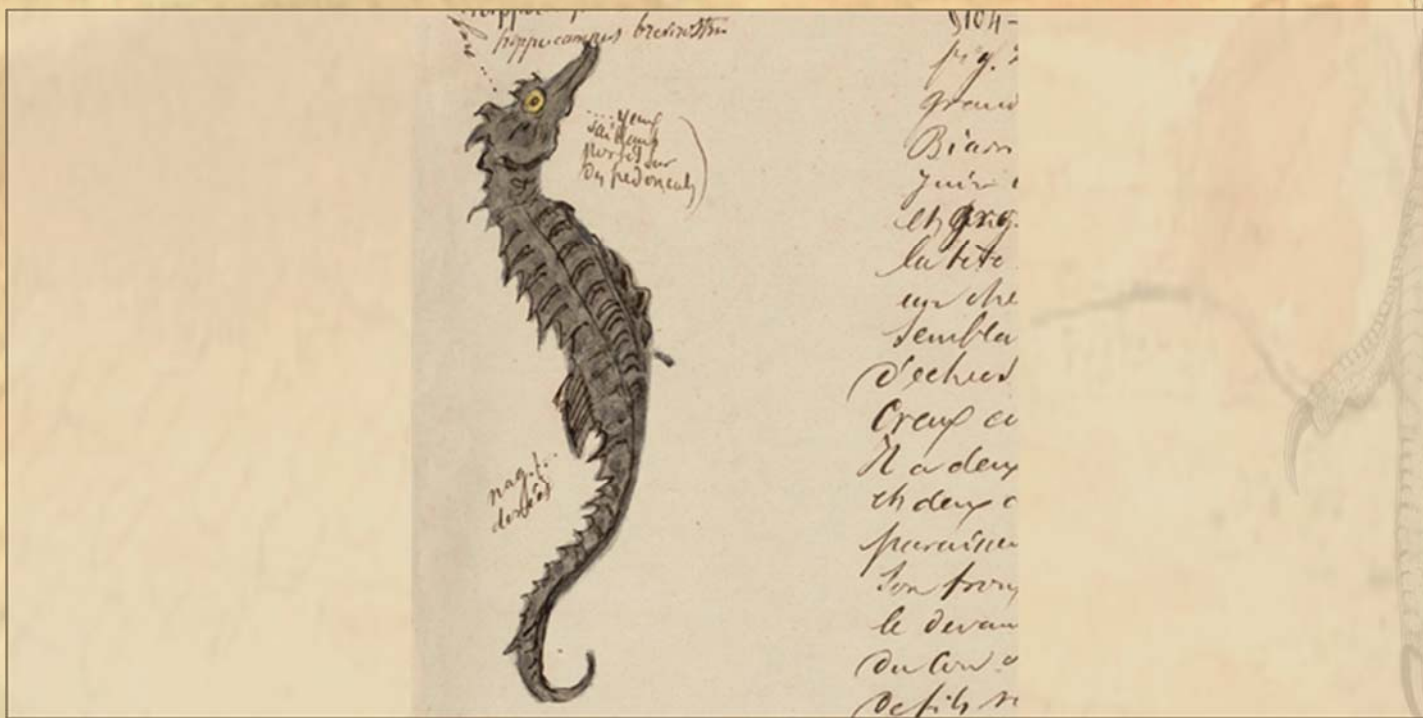 hippocampus brevirostris
yeux
saillants
portés sur
des pedoncules
nag.
dorsale
5104-
fig.
grand
Biarr
Juin
et grig.
la tête
un che
sembla
d'echecs
Creux
Il a deux
et deux
paraisse
Son tronc
le devan
du Cou
de fils